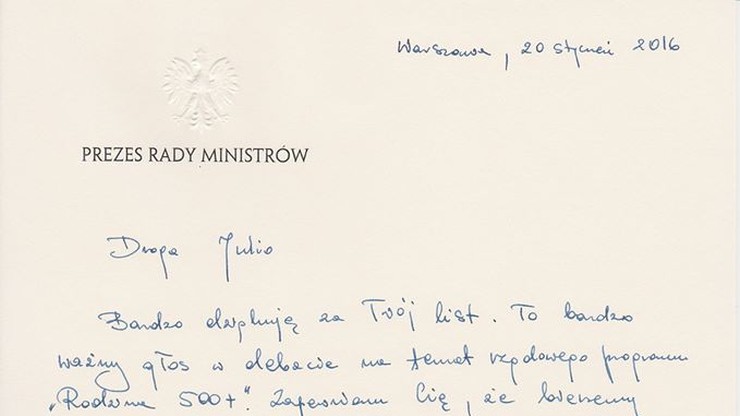 Warszawa, 20 styczeń 2016
PREZES RADY MINISTRÓW
Droga Julio
Bardzo dziękuję za Twój list. To bardzo
ważny głos w debacie na temat rządowego programu
„Rodzina 500+". Zapewniam Cię, że bierzemy